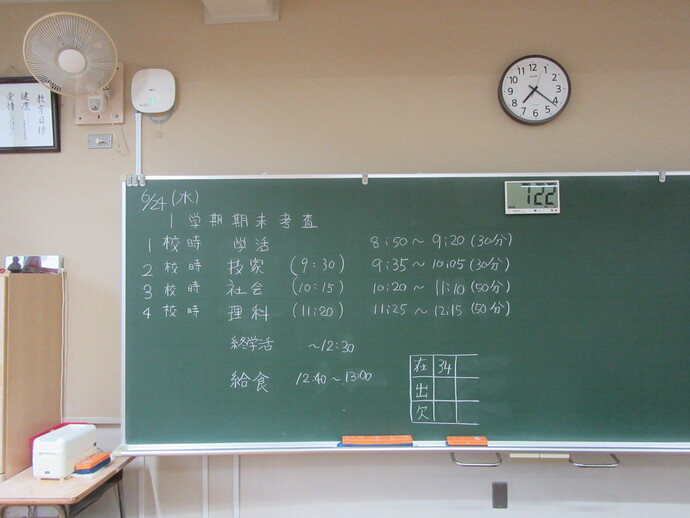 教育目標
健康
愛情
12
1
2
3
4
5
6
7
8
9
10
11
7:22
6/24 (水)
1学期期末考査
1 校時 学活 8:50〜9:20 (30分)
2 校時 技家 (9:30) 9:35〜10:05 (30分)
3 校時 社会 (10:15) 10:20〜11:10 (50分)
4 校時 理科 (11:20) 11:25〜12:15 (50分)
終学活 〜12:30
給食 12:40〜13:00
在 34
出
欠